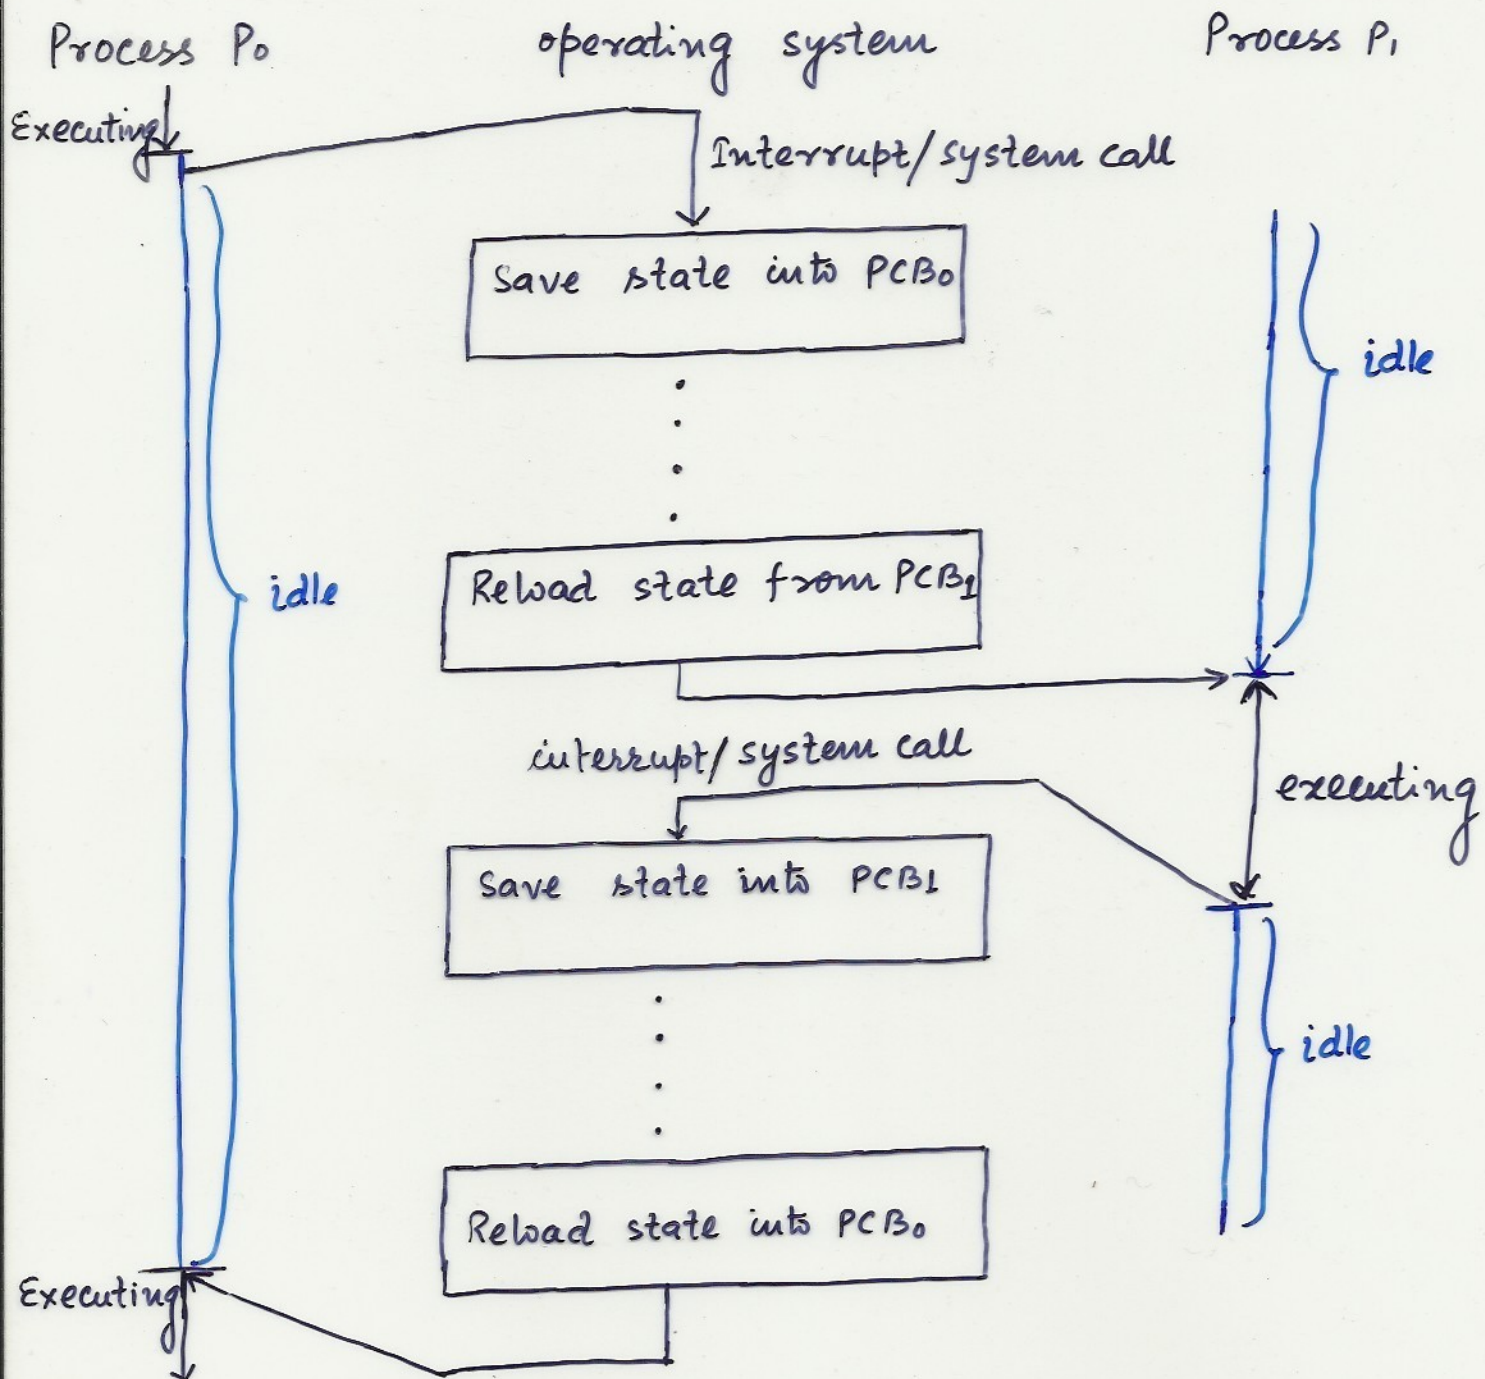 Process P0 operating system Process P1
Executing
Interrupt/system call
Save state into PCB0
idle
Reload state from PCB1
idle
interrupt/system call
executing
Save state into PCB1
idle
Reload state into PCB0
Executing